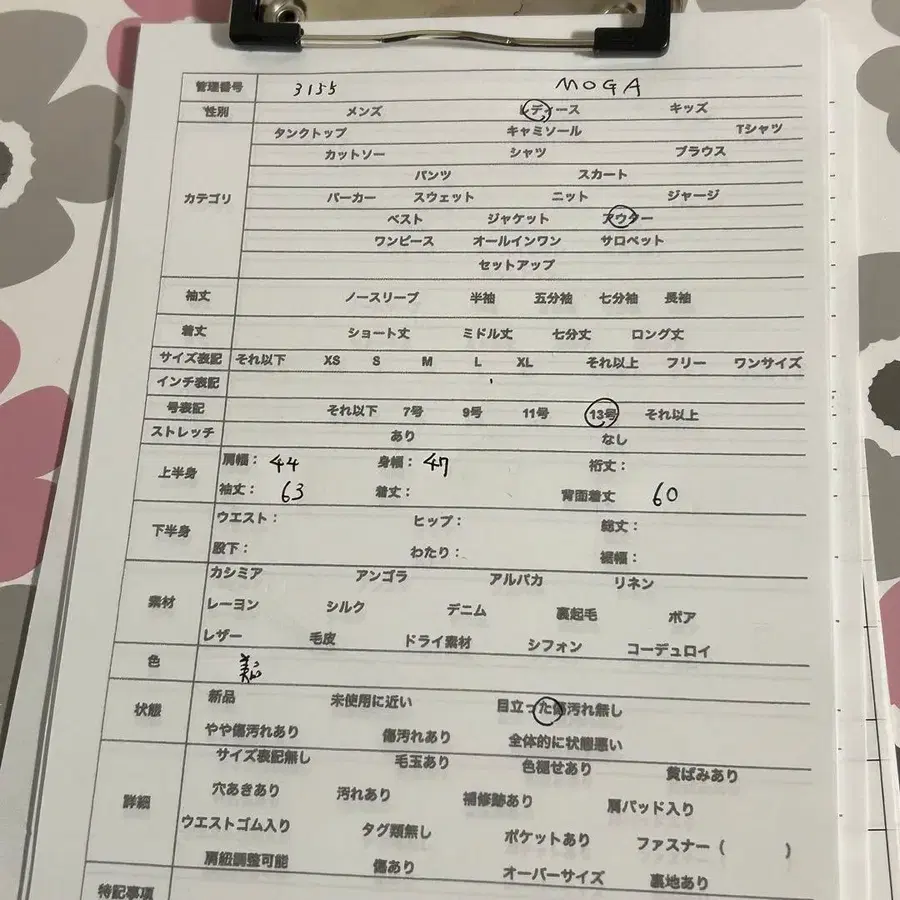 管理番号 3155 MOGA
性別 メンズ レディース キッズ
タンクトップ キャミソール Tシャツ
カットソー シャツ ブラウス
パンツ スカート
カテゴリ パーカー スウェット ニット ジャージ
ベスト ジャケット アウター
ワンピース オールインワン サロペット
セットアップ
袖丈 ノースリーブ 半袖 五分袖 七分袖 長袖
着丈 ショート丈 ミドル丈 七分丈 ロング丈
サイズ表記 それ以下 XS S M L XL それ以上 フリー ワンサイズ
インチ表記
号表記 それ以下 7号 9号 11号 13号 それ以上
ストレッチ あり なし
上半身 肩幅: 44 身幅: 47 裄丈:
袖丈: 63 着丈: 背面着丈 60
下半身 ウエスト: ヒップ: 総丈:
股下: わたり: 裾幅:
カシミア アンゴラ アルパカ リネン
素材 レーヨン シルク デニム 裏起毛 ボア
レザー 毛皮 ドライ素材 シフォン コーデュロイ
色
状態 新品 未使用に近い 目立った傷汚れ無し
やや傷汚れあり 傷汚れあり 全体的に状態悪い
サイズ表記無し 毛玉あり 色褪せあり 黄ばみあり
詳細 穴あきあり 汚れあり 補修跡あり 肩パッド入り
ウエストゴム入り タグ類無し ポケットあり ファスナー( )
肩紐調整可能 傷あり オーバーサイズ 裏地あり
特記事項